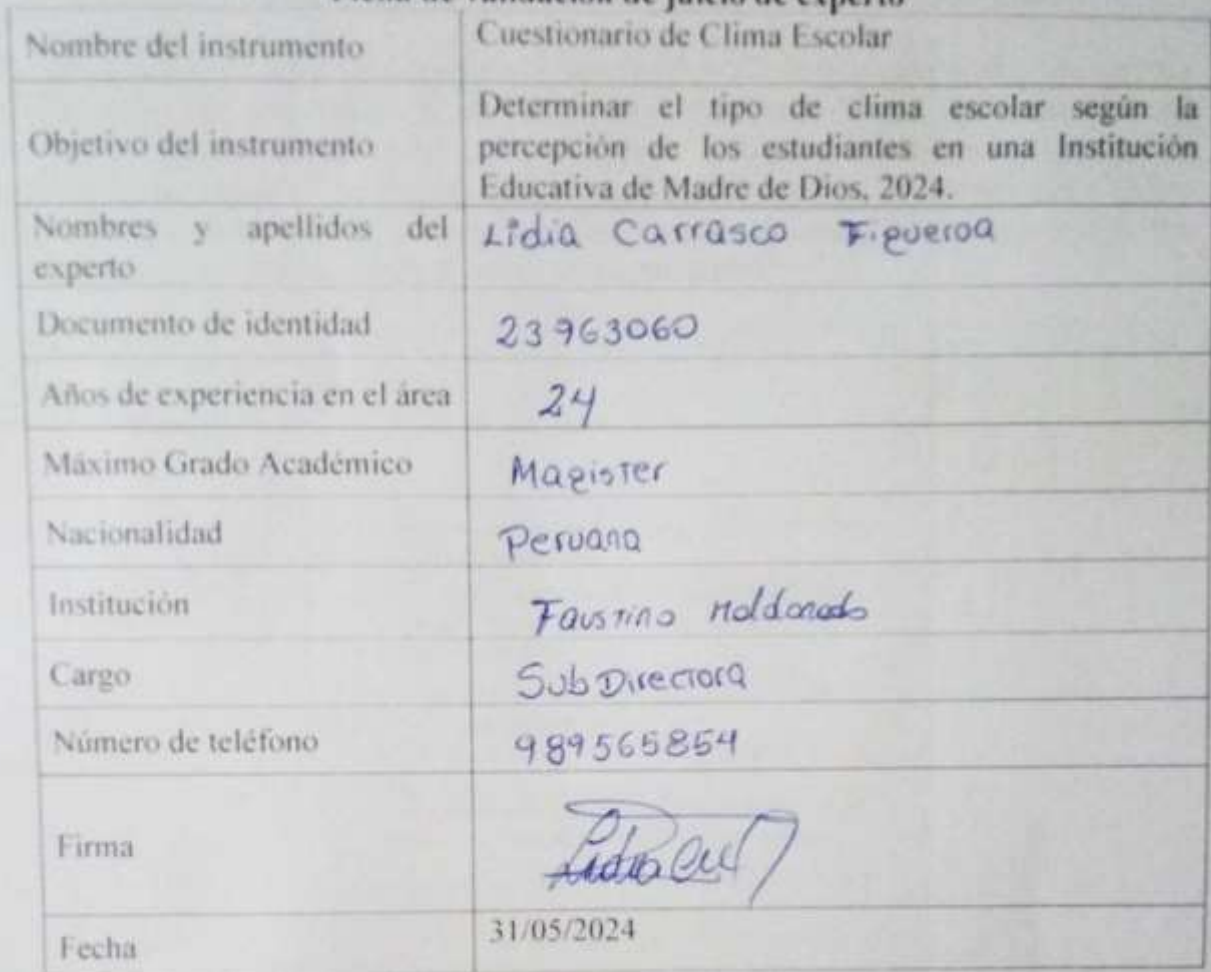 Ficha de validación de juicio de experto
Nombre del instrumento
Cuestionario de Clima Escolar
Objetivo del instrumento
Determinar el tipo de clima escolar según la
percepción de los estudiantes en una Institución
Educativa de Madre de Dios, 2024.
Nombres y apellidos del
experto
Lidia Carrasco Figueroa
Documento de identidad
23963060
Años de experiencia en el área
24
Máximo Grado Académico
Magister
Nacionalidad
Peruana
Institución
Faustino Maldonado
Cargo
Sub Directora
Número de teléfono
989565854
Firma
Fecha
31/05/2024